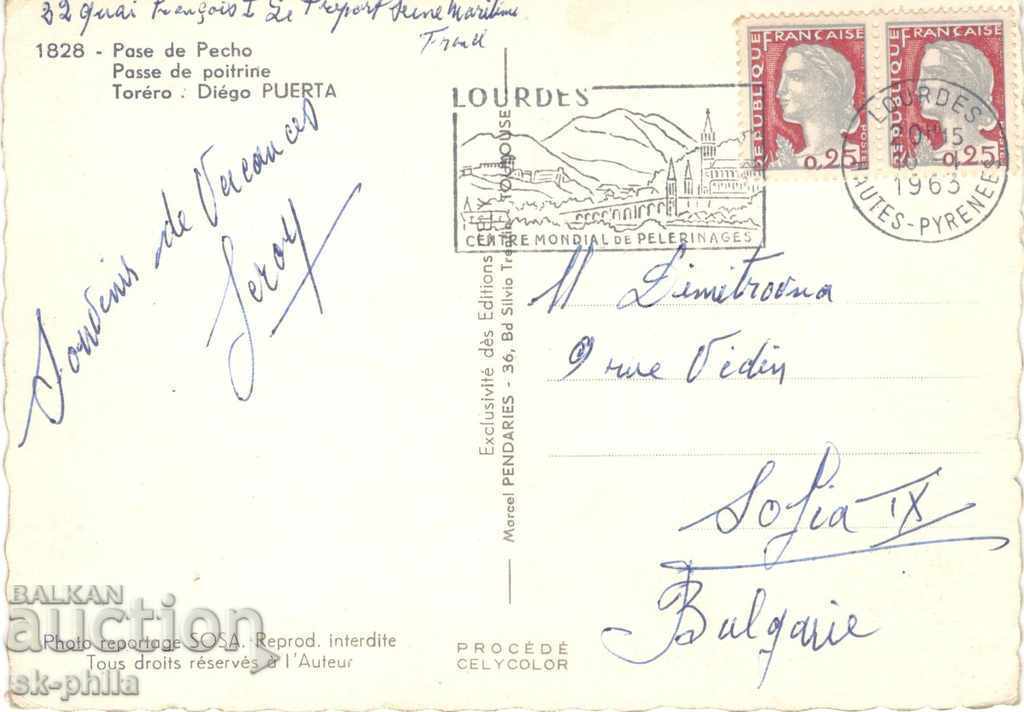 22 Quai François I Le Treport Seine Maritime
France
1828 - Pase de Pecho
Passe de poitrine
Toréro : Diégo PUERTA
Souvenirs de Vacances
Leroy
LOURDES
CENTRE MONDIAL DE PELERINAGES
REPUBLIQUE FRANÇAISE
POSTES
0,25
REPUBLIQUE FRANÇAISE
POSTES
0,25
LOURDES
1963
HAUTES-PYRENEES
Exclusivité des Editions
Marcel PENDARIES - 36, Bd Silvio TOULOUSE
M Dimitrovna
9 rue Vidin
Sofia IX
Bulgarie
Photo reportage SOSA. Reprod. interdite
Tous droits réservés à l'Auteur
PROCÉDÉ
CELYCOLOR
BALKAN
auction
sk-phila